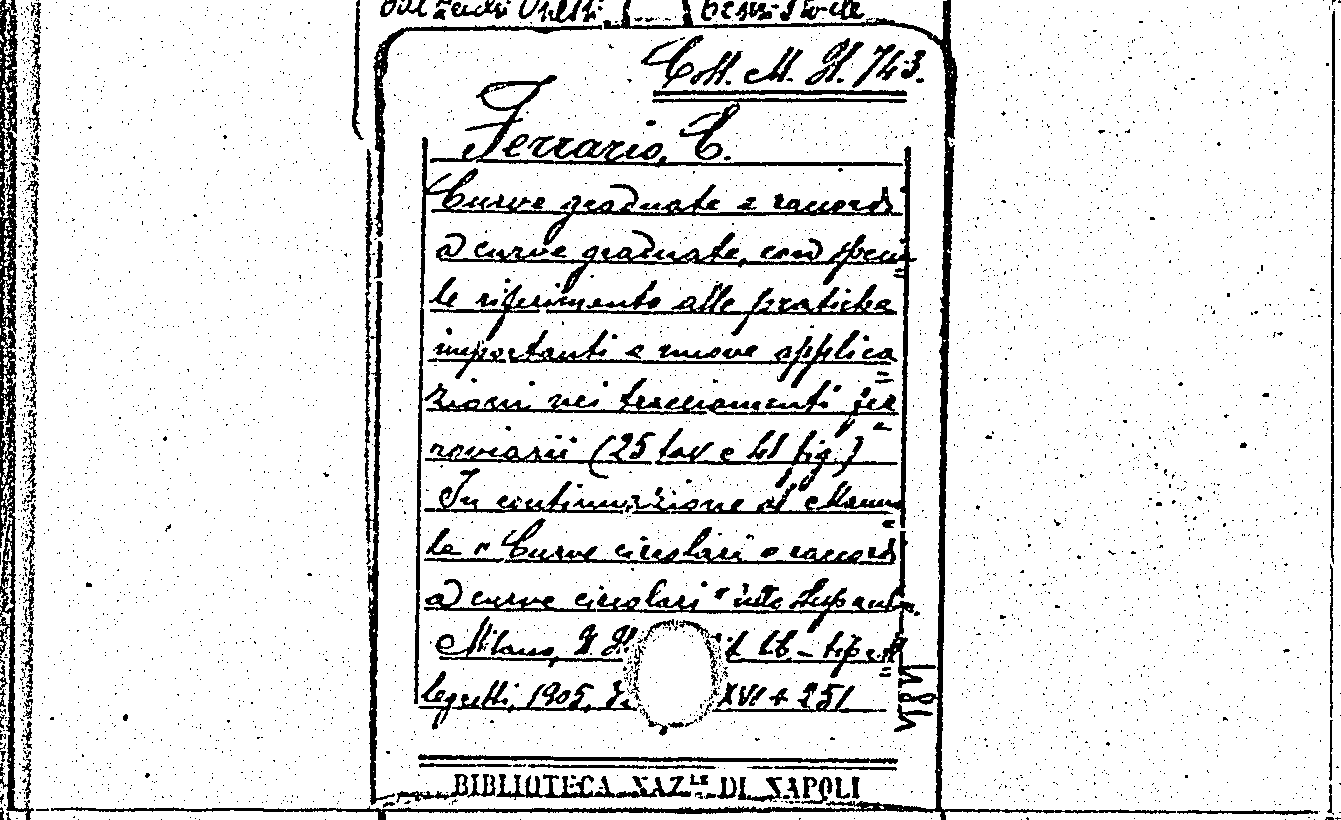 Coll. M. H. 743.
Ferrario, C.
Curve graduate e raccordi
a curve graduate, con specia
le riferimento alle pratiche
importanti e nuove applica
zioni nei tracciamenti fer
roviarii (25 tav e 41 fig.)
In continuazione al Manua
le "Curve circolari e raccordi
a curve circolari"
Milano, U. Edit Lib - tip
1905, XVI + 251
BIBLIOTECA NAZ.LE DI NAPOLI